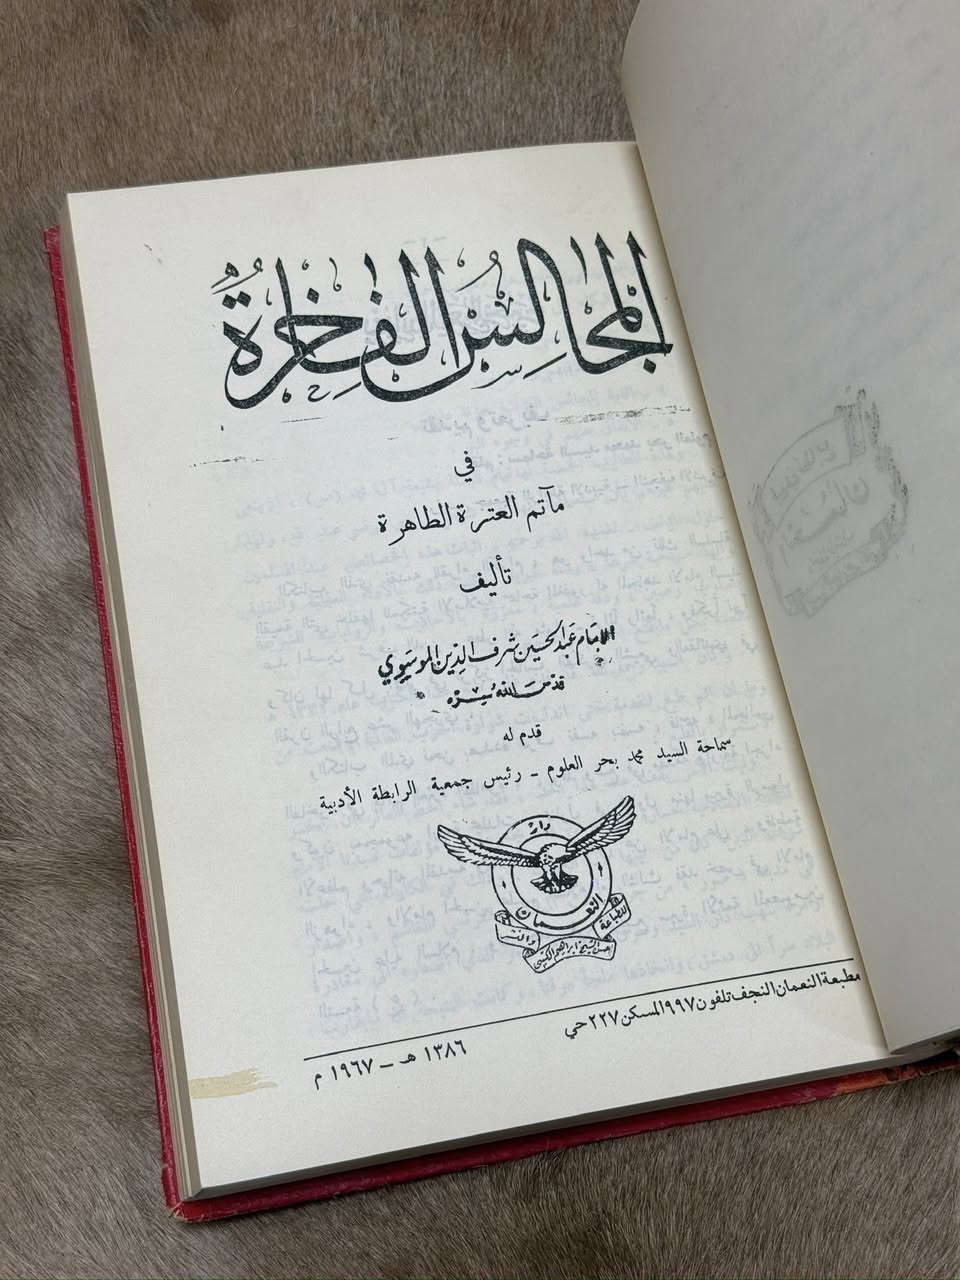 المجالس الفاخرة
في
مآتم العترة الطاهرة
تأليف
الإمام عبد الحسين شرف الدين الموسوي
قدس الله سره
قدم له
سماحة السيد محمد بحر العلوم - رئيس جمعية الرابطة الأدبية
دار
النعمان
للطباعة
والنشر
حسن الشيخ ابراهيم الكتبي
مطبعة النعمان النجف تلفون ٩٩٧ المسكن ٢٢٧ حي
١٣٨٦ هـ - ١٩٦٧ م